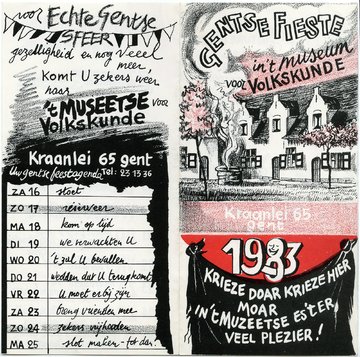 voor Echte Gentse
SFEER
gezelligheid en nog veeel
meer,
komt U zekers weer
naar
't MUSEETSE voor
Volkskunde
Kraanlei 65 gent
Uw gentse feestagenda Tel: 23 13 36
ZA 16 stoet
ZO 17
MA 18 kom op tijd
DI 19 we verwachten U
WO 20 't zal U bevallen
DO 21 wedden dat U terugkomt
VR 22 U moet erbij zijn
ZA 23 breng vrienden mee
ZO 24 zekers vrijhouden
MA 25 slot maken - tot dan!
GENTSE FIESTE
in't museum
voor VOLKSKUNDE
Kraanlei 65
gent
1983
KRIEZE DOAR KRIEZE HIER
MOAR
IN 'T MUZEETSE ES'TER
VEEL PLEZIER!